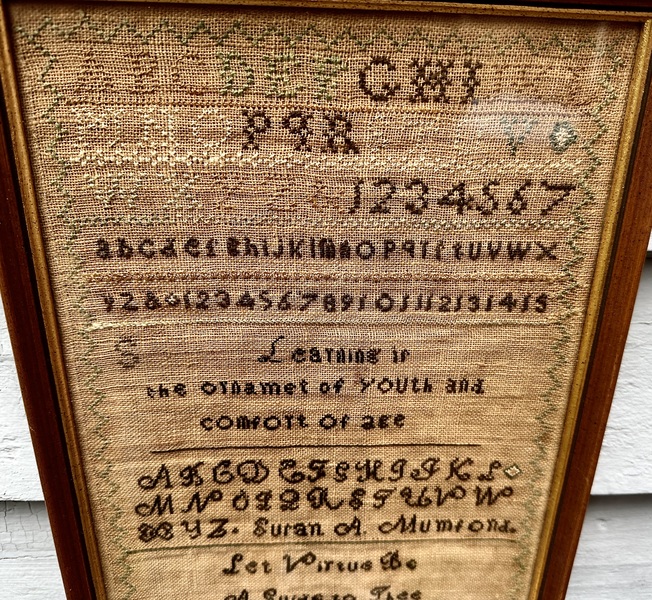 A B C D E F G H I
P Q R V
1 2 3 4 5 6 7
a b c d e f g h i j k l m n o p q r ſ t u v w x
y z & 1 2 3 4 5 6 7 8 9 10 11 12 13 14 15
S Learning is
the ornamet of youth and
comfort of age
A B C D E F G H I J K L
M N O P Q R S T U V W
X Y Z. Susan A. Mumford.
Let Virtue Be
A Guide to Thee